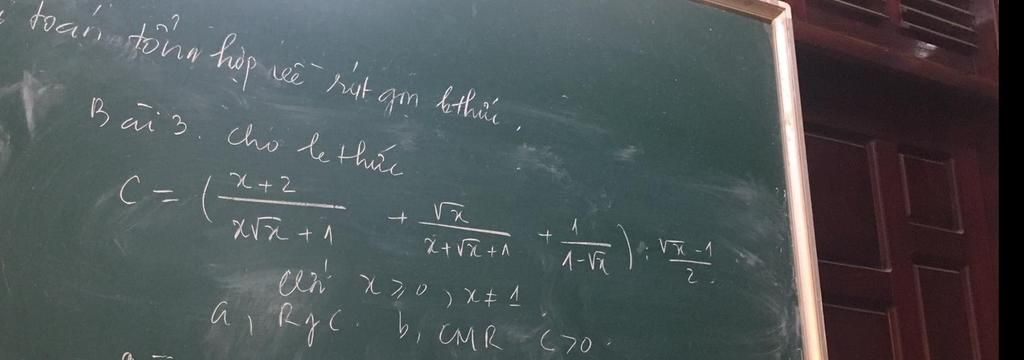 toán tổng hợp về rút gọn bthức.
Bài 3. Cho bthức
C = ( (x+2)/(x√x + 1) + √x/(x+√x+1) + 1/(1-√x) ) : (√x-1)/2.
với x ≥ 0, x ≠ 1
a, Rg C. b, CMR C > 0.